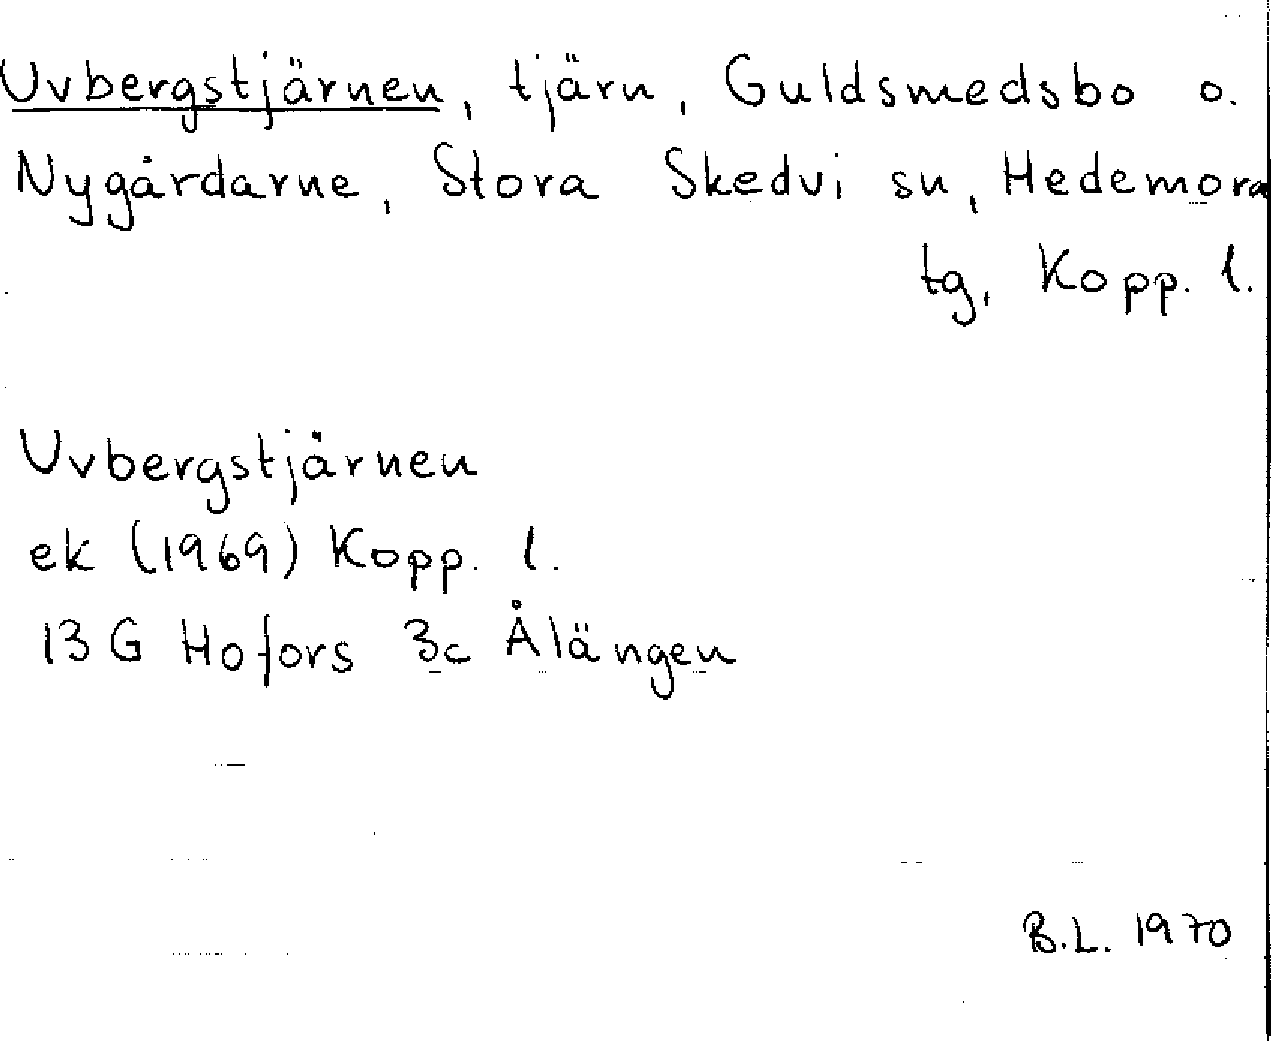 Uvbergstjärnen, tjärn, Guldsmedsbo o.
Nygårdarne, Stora Skedvi sn, Hedemora
tg, Kopp. l.
Uvbergstjärnen
ek (1969) Kopp. l.
13 G Hofors 3c Ålängen
B.L. 1970